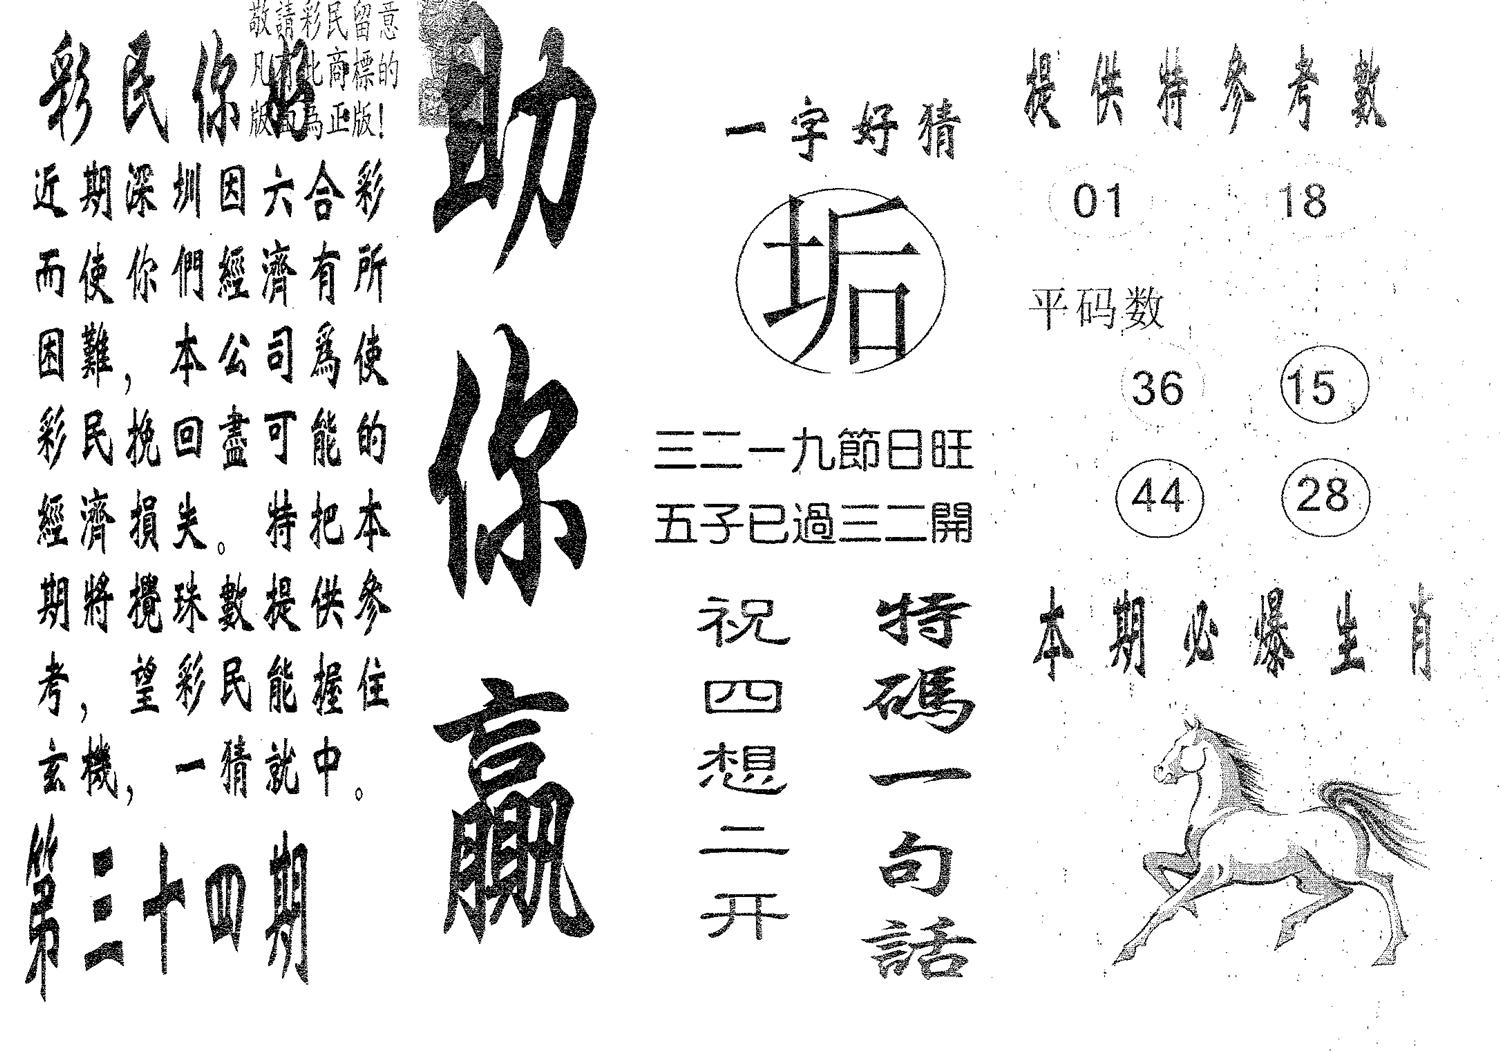 敬請彩民留意
凡有此商標的
版面為正版!
彩民你好
近期深圳因六合彩
而使你們經濟有所
困難，本公司為使
彩民挽回盡可能的
經濟損失。特把本
期將攪珠數提供參
考，望彩民能握住
玄機，一猜就中。
第三十四期
助你贏
一字好猜
垢
三二一九節日旺
五子已過三二開
特碼一句話
祝四想二开
提供特參考數
01 18
平码数
36 15
44 28
本期必爆生肖